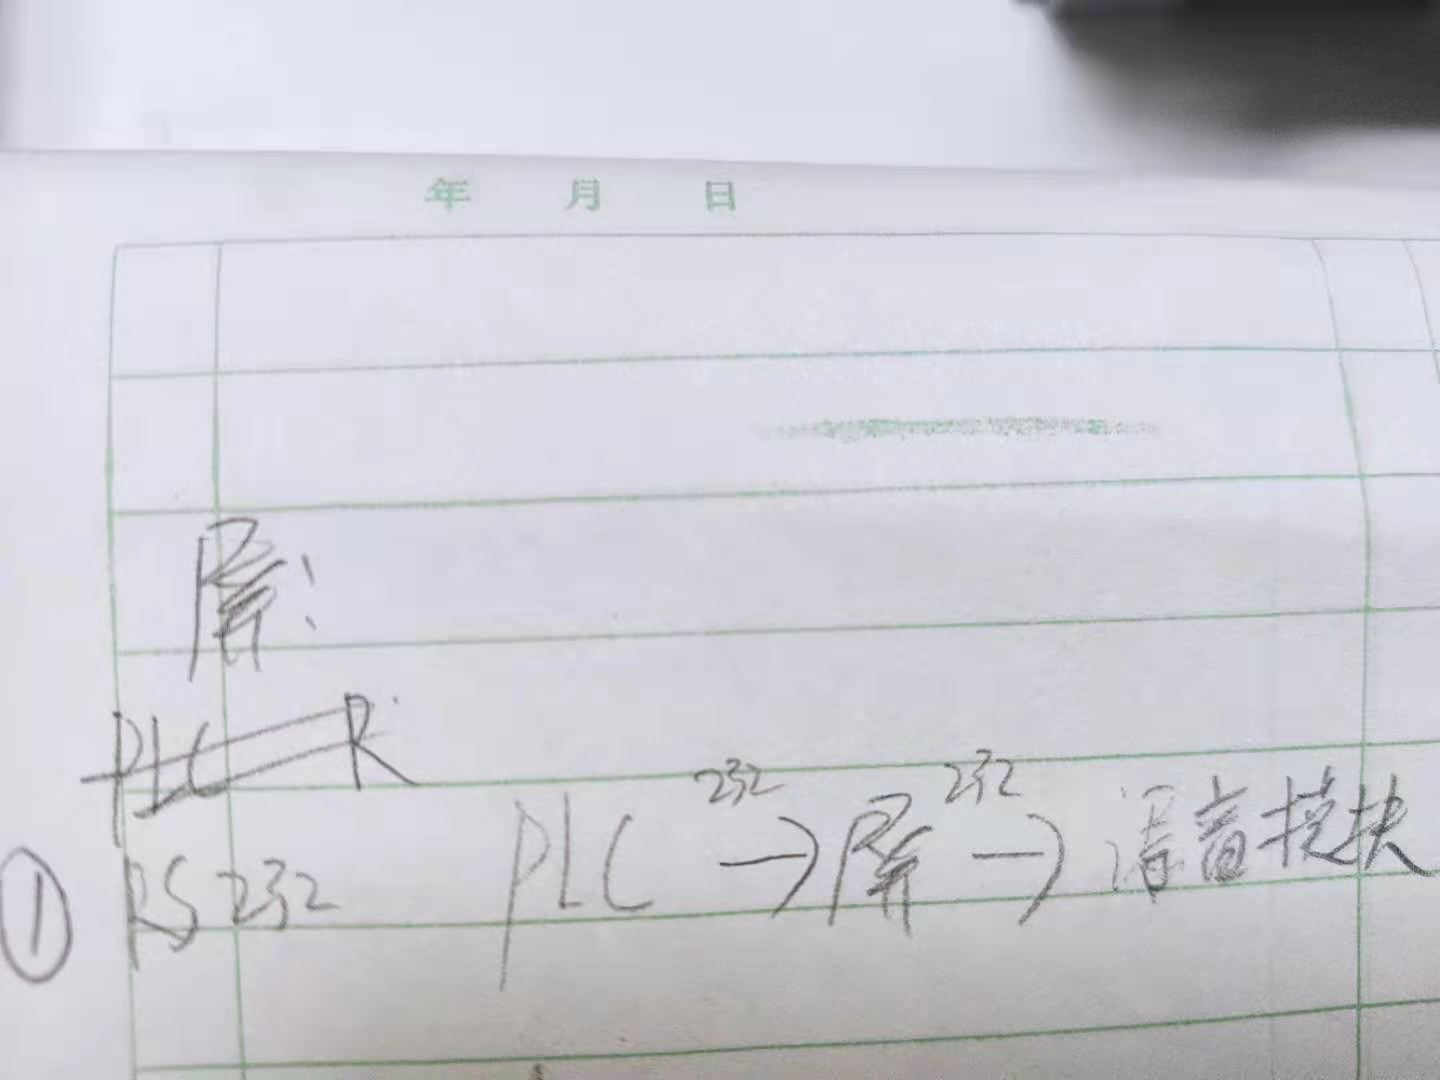 年 月 日
屏:
PLC R
232 232
① RS232 PLC → 屏 → 语音模块